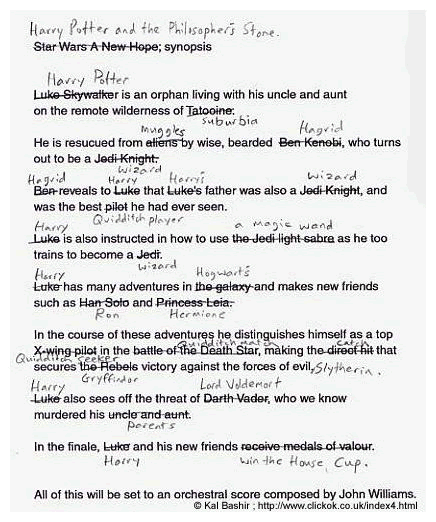 Harry Potter and the Philosopher's Stone.
Star Wars A New Hope; synopsis
Harry Potter
Luke Skywalker is an orphan living with his uncle and aunt
on the remote wilderness of Tatooine.
suburbia
muggles Hagrid
He is resucued from aliens by wise, bearded Ben Kenobi, who turns
out to be a Jedi Knight.
wizard
Hagrid Harry Harry's wizard
Ben reveals to Luke that Luke's father was also a Jedi Knight, and
was the best pilot he had ever seen.
Quidditch player
Harry a magic wand
Luke is also instructed in how to use the Jedi light sabre as he too
trains to become a Jedi.
wizard
Harry Hogwarts
Luke has many adventures in the galaxy and makes new friends
such as Han Solo and Princess Leia.
Ron Hermione
In the course of these adventures he distinguishes himself as a top
Quidditch match catch
X-wing pilot in the battle of the Death Star, making the direct hit that
Quidditch seeker
secures the Rebels victory against the forces of evil, Slytherin.
Gryffindor
Harry Lord Voldemort
Luke also sees off the threat of Darth Vader, who we know
murdered his uncle and aunt.
parents
In the finale, Luke and his new friends receive medals of valour.
Harry win the House Cup.
All of this will be set to an orchestral score composed by John Williams.
© Kal Bashir ; http://www.clickok.co.uk/index4.html